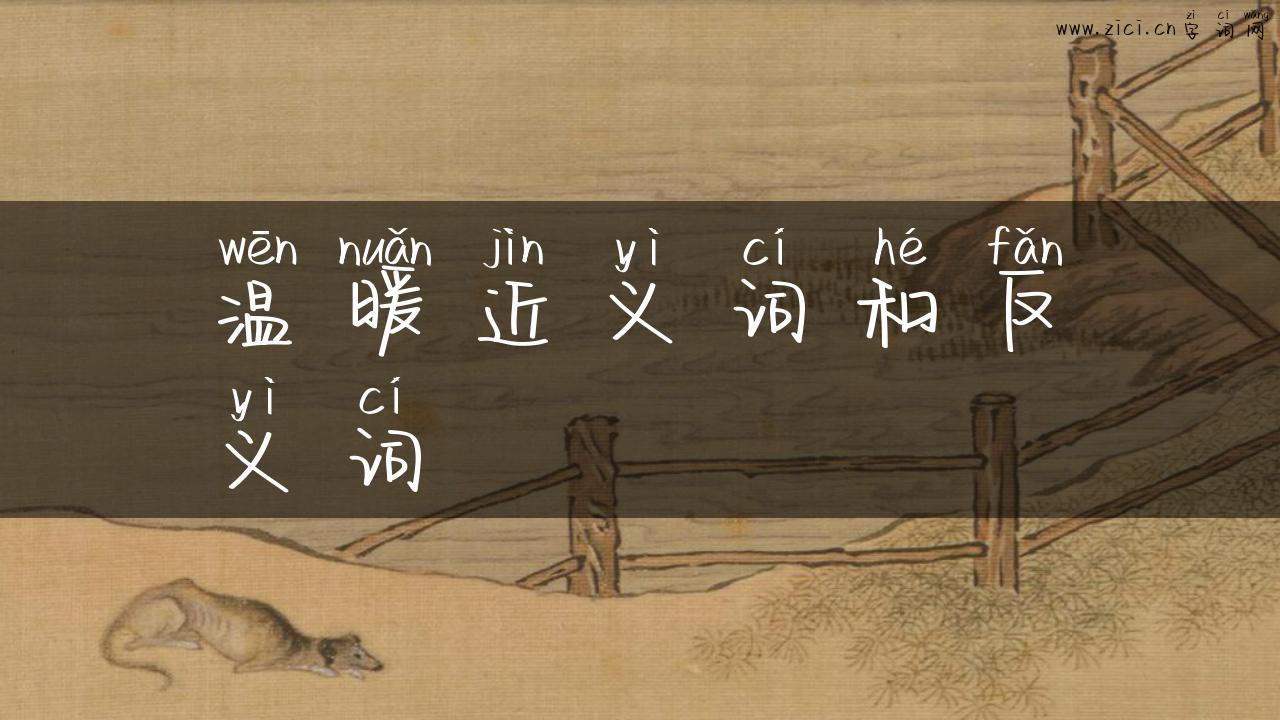 zì cí wǎng
www.zici.cn 字词网
wēn nuǎn jìn yì cí hé fǎn
温暖近义词和反
yì cí
义词